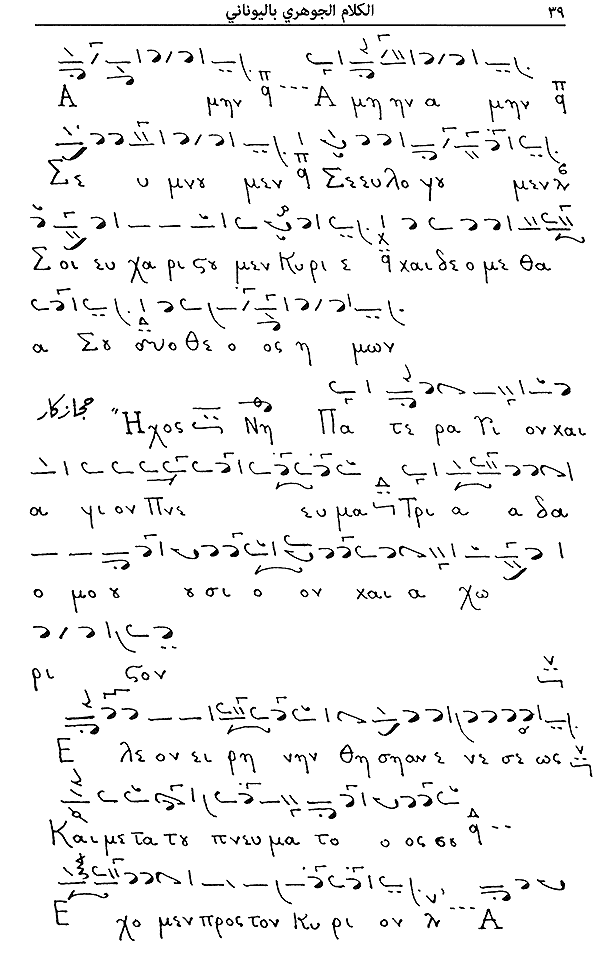 ٣٩ الكلام الجوهري باليوناني
Α μην Α μη ην α μην
Σε υ μνου μεν Σε ευ λο γου μεν
Σοι ευ χα ρι ςου μεν Κυ ρι ε και δε ο με θα
α Σου ο Θε ο ος η μων
حجازكار Ηχος Νη Πα τε ρα Υι ον και
α γι ον Πνε ευ μα Τρι α α δα
ο μο ου ου σι ο ον και α χω
ρι ςον
Ε λε ον ει ρη νην θη σηαν ε νε σε ως
Και με τα του πνευ μα το ο ος σου
Ε χο μεν προς τον Κυ ρι ον Α